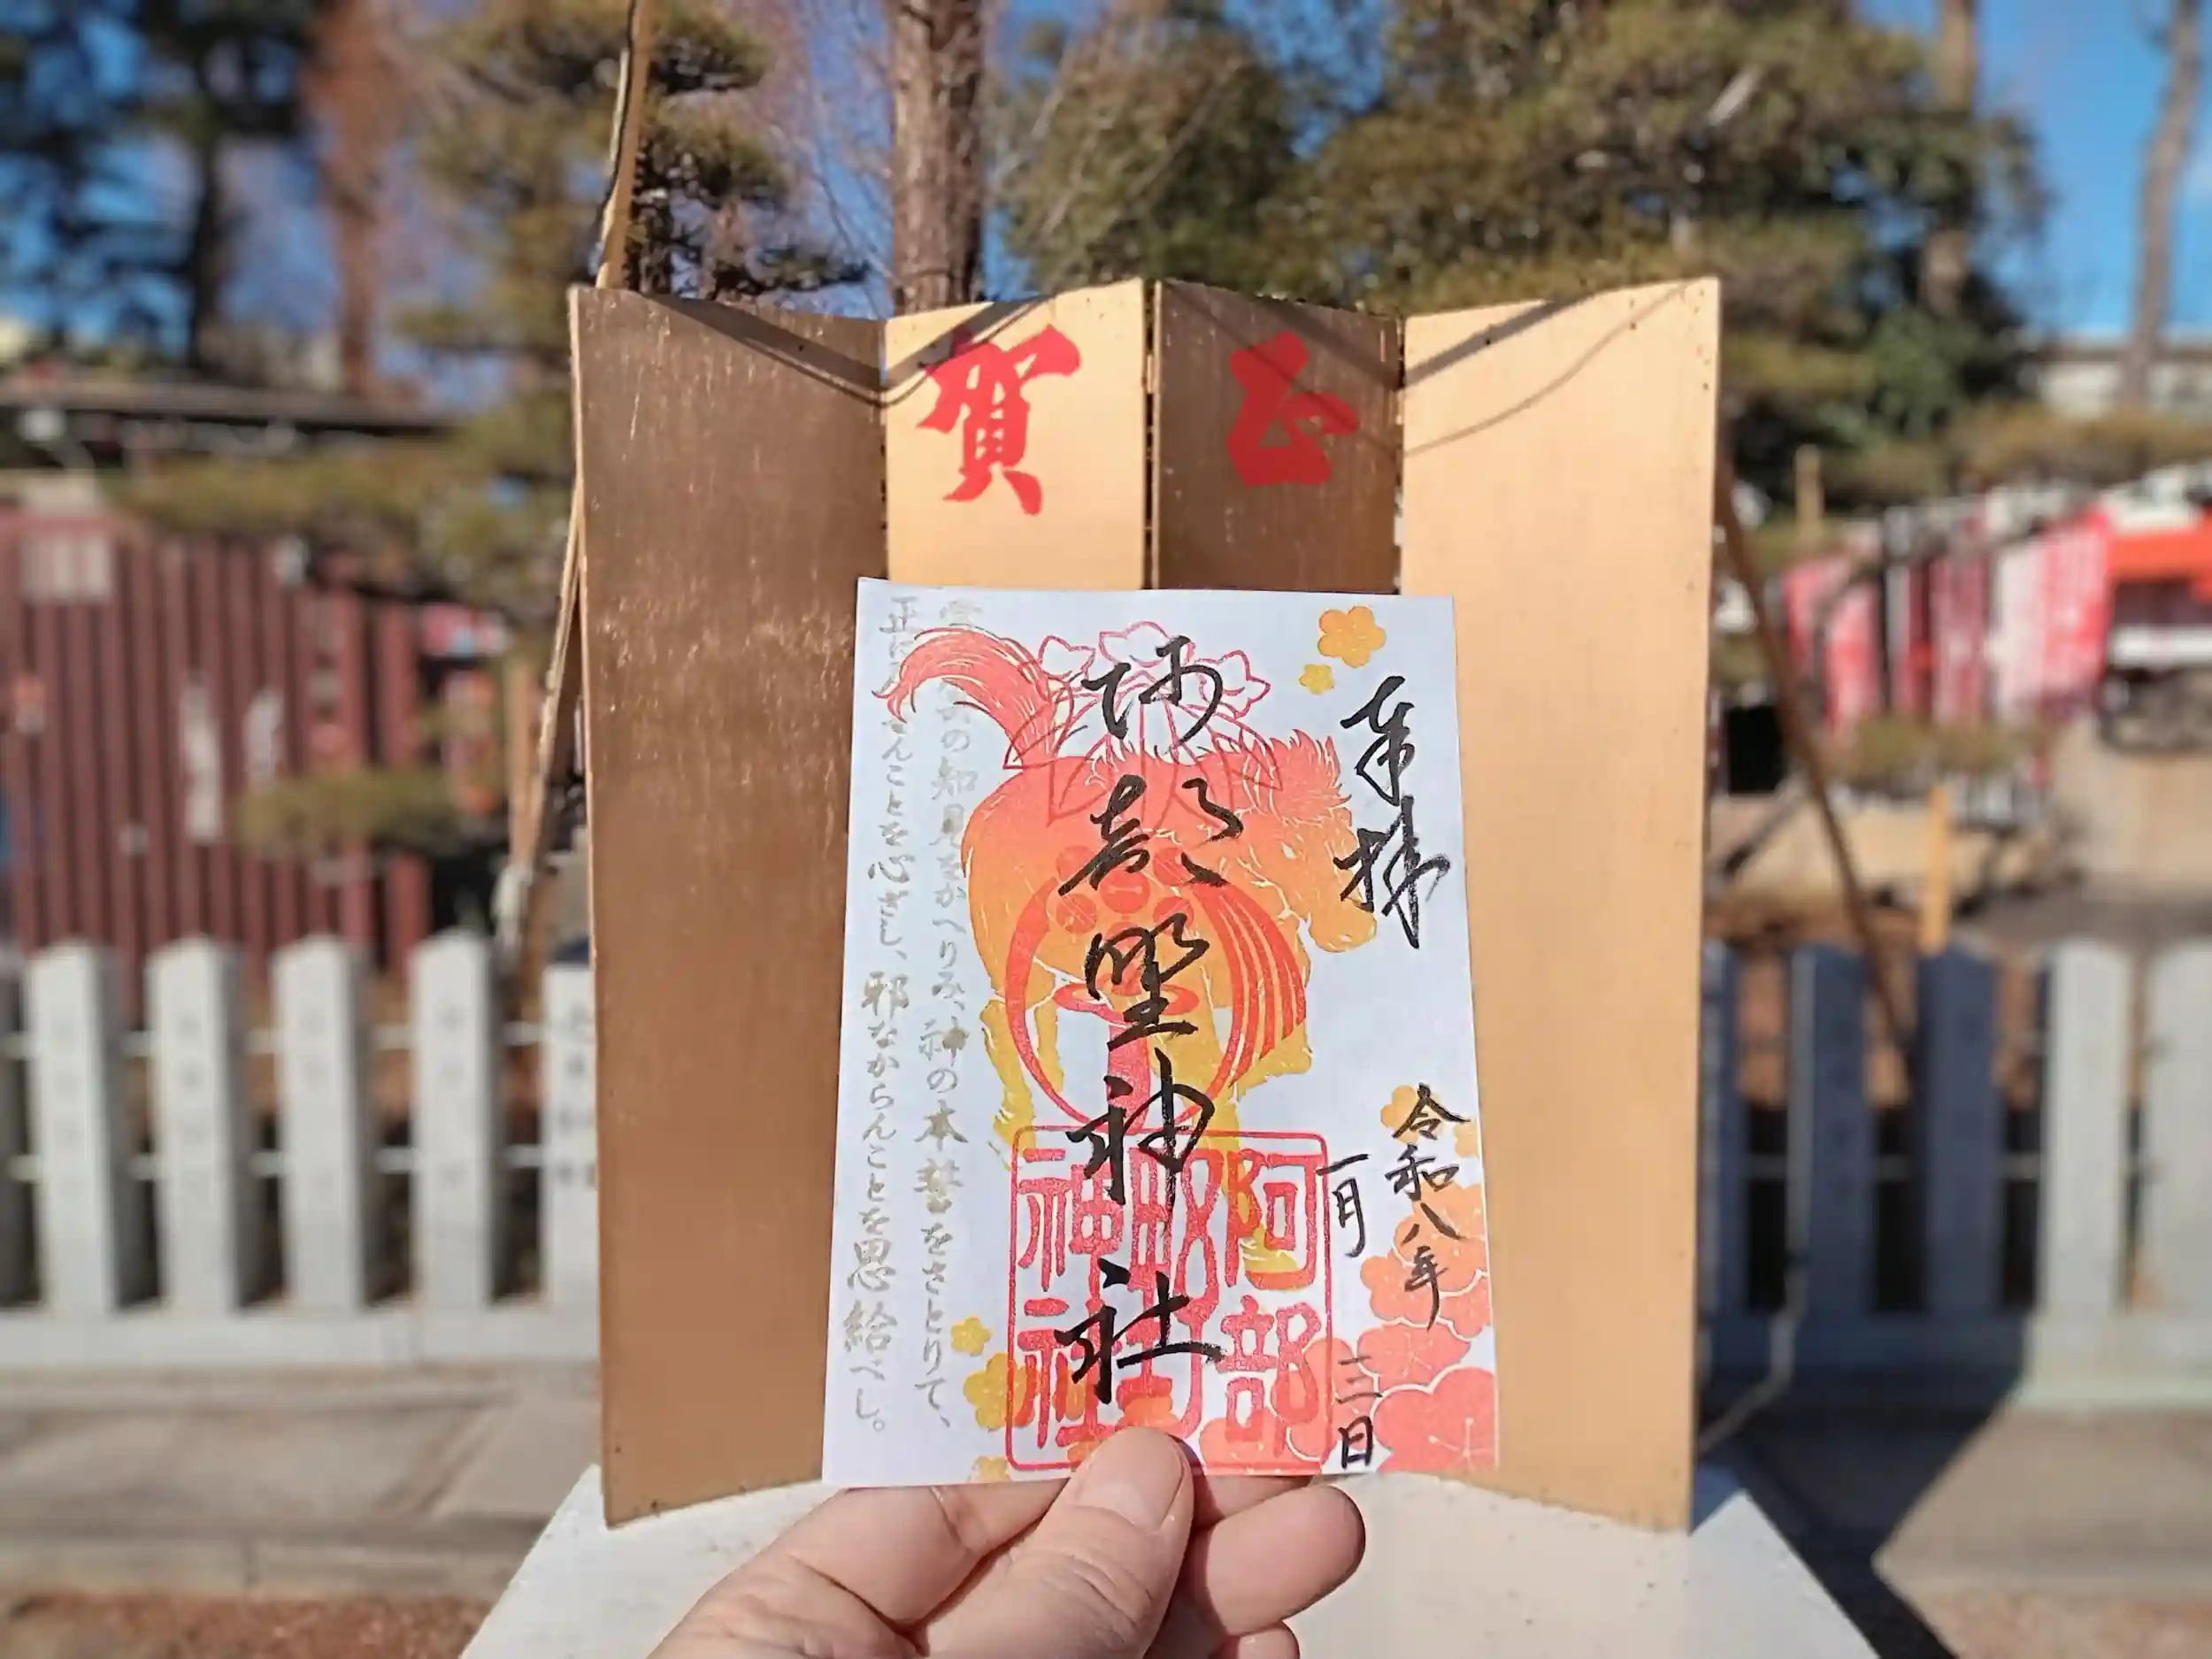 賀正
奉拝
阿部野神社
令和八年
一月三日
阿部野神社
の知見をかへりみ、神の本誓をさとりて、
正んことを心ざし、邪なからんことを思給べし。